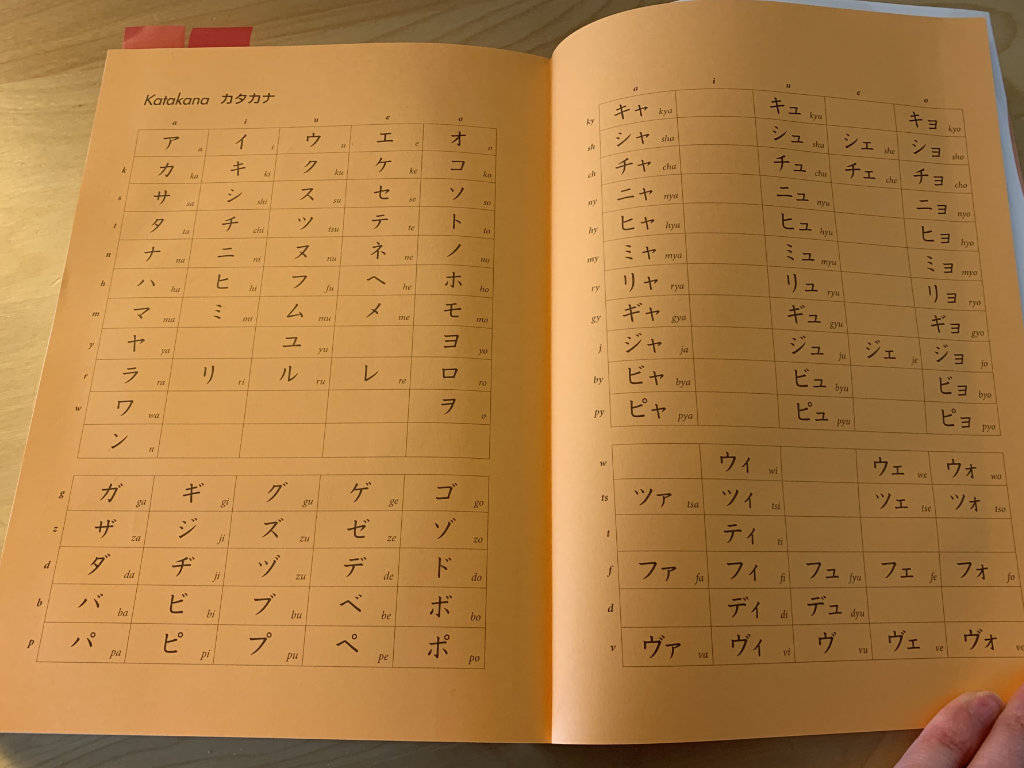 Katakana カタカナ
a i u e o
ア a イ i ウ u エ e オ o
k カ ka キ ki ク ku ケ ke コ ko
s サ sa シ shi ス su セ se ソ so
t タ ta チ chi ツ tsu テ te ト to
n ナ na ニ ni ヌ nu ネ ne ノ no
h ハ ha ヒ hi フ fu ヘ he ホ ho
m マ ma ミ mi ム mu メ me モ mo
y ヤ ya ユ yu ヨ yo
r ラ ra リ ri ル ru レ re ロ ro
w ワ wa ヲ o
ン n
g ガ ga ギ gi グ gu ゲ ge ゴ go
z ザ za ジ ji ズ zu ゼ ze ゾ zo
d ダ da ヂ ji ヅ zu デ de ド do
b バ ba ビ bi ブ bu ベ be ボ bo
p パ pa ピ pi プ pu ペ pe ポ po
a i u e o
ky キャ kya キュ kyu キョ kyo
sh シャ sha シュ shu シェ she ショ sho
ch チャ cha チュ chu チェ che チョ cho
ny ニャ nya ニュ nyu ニョ nyo
hy ヒャ hya ヒュ hyu ヒョ hyo
my ミャ mya ミュ myu ミョ myo
ry リャ rya リュ ryu リョ ryo
gy ギャ gya ギュ gyu ギョ gyo
j ジャ ja ジュ ju ジェ je ジョ jo
by ビャ bya ビュ byu ビョ byo
py ピャ pya ピュ pyu ピョ pyo
w ウィ wi ウェ we ウォ wo
ts ツァ tsa ツィ tsi ツェ tse ツォ tso
t ティ ti
f ファ fa フィ fi フュ fyu フェ fe フォ fo
d ディ di デュ dyu
v ヴァ va ヴィ vi ヴ vu ヴェ ve ヴォ vo